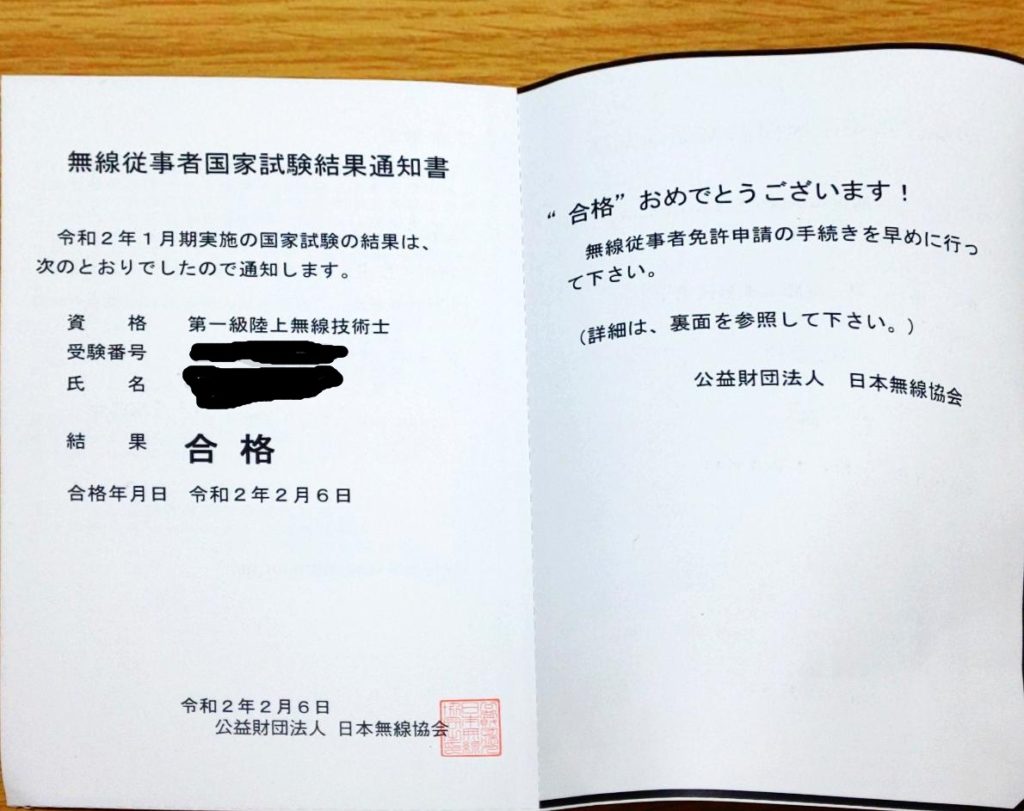 無線従事者国家試験結果通知書
令和２年１月期実施の国家試験の結果は、
次のとおりでしたので通知します。
資　　格　　第一級陸上無線技術士
受験番号
氏　　名
結　　果　　合　格
合格年月日　令和２年２月６日
令和２年２月６日
公益財団法人 日本無線協会
“合格” おめでとうございます！
無線従事者免許申請の手続きを早めに行っ
て下さい。
（詳細は、裏面を参照して下さい。）
公益財団法人　日本無線協会